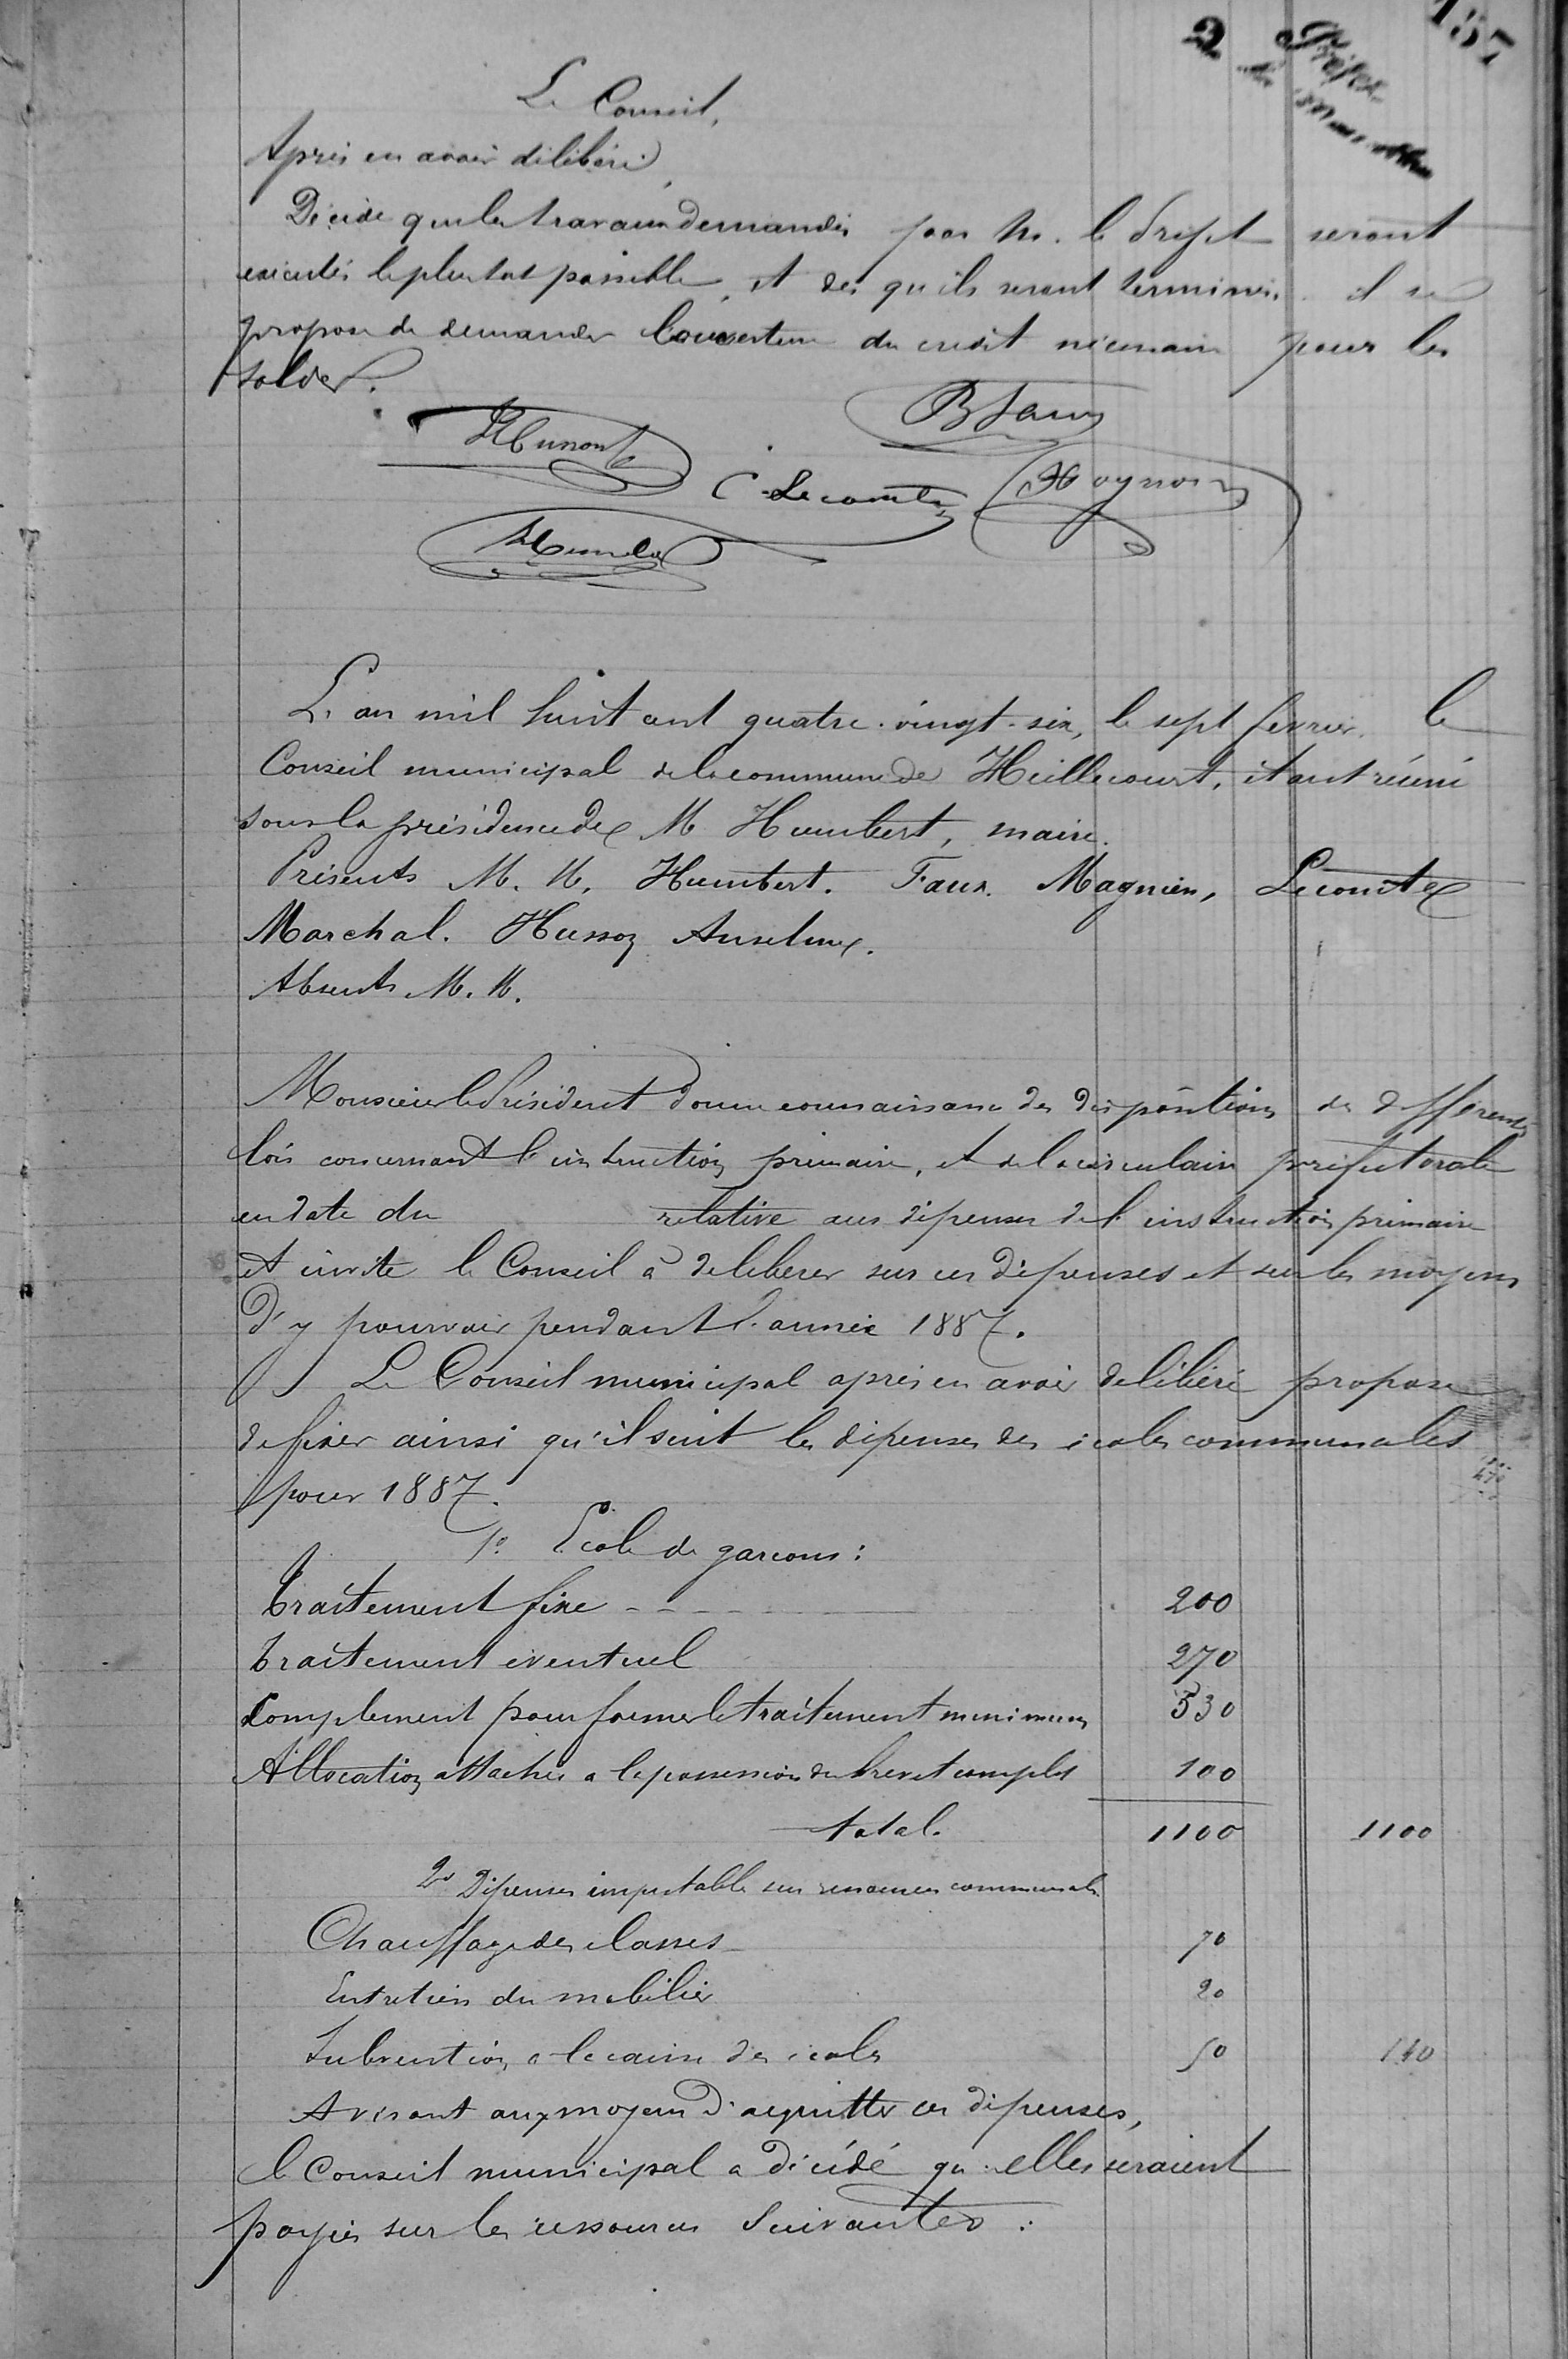 157
2
Le Conseil,
Après en avoir délibéré,
Décide que les travaux demandés par M. le Préfet seront
exécutés le plus tot possible, et des qu'ils seront terminés il se
propose de demander l'ouverture du crédit nécessaire pour les
solder.
B Faux
C. Lecomte
L'an mil huit cent quatre-vingt-six, le sept février, le
Conseil municipal de la commune de Heillecourt, étant réuni
sous la présidence de M Humbert, maire.
Présents M. M. Humbert. Faux. Magnien, Lecomte
Marchal. Husson Anselme.
Absents M. M.
Monsieur le Président donne connaissance des dispositions des differentes
lois concernant l'instruction primaire, et de la circulaire préfectorale
en date du relative aux dépenses de l'instruction primaire
et invite le Conseil à deliberer sur ces dépenses et sur les moyens
d'y pourvoir pendant l'année 1887.
Le Conseil municipal apres en avoir délibéré propose
de fixer ainsi qu'il suit les dépenses des écoles communales
pour 1887.
1º Ecole de garcons :
Traitement fixe 200
Traitement eventuel 270
Complement pour former le traitement minimum 530
Allocation attachée a la possession du brevet complet 100
total. 1100 1100
2º Dépenses imputables sur ressources communales
Chauffage des classes 70
Entretien du mobilier 20
Subvention a la caisse des écoles 50 140
Avisant aux moyens d'acquitter ces dépenses,
le Conseil municipal a décidé qu'elles seraient
payées sur les ressources Suivantes :